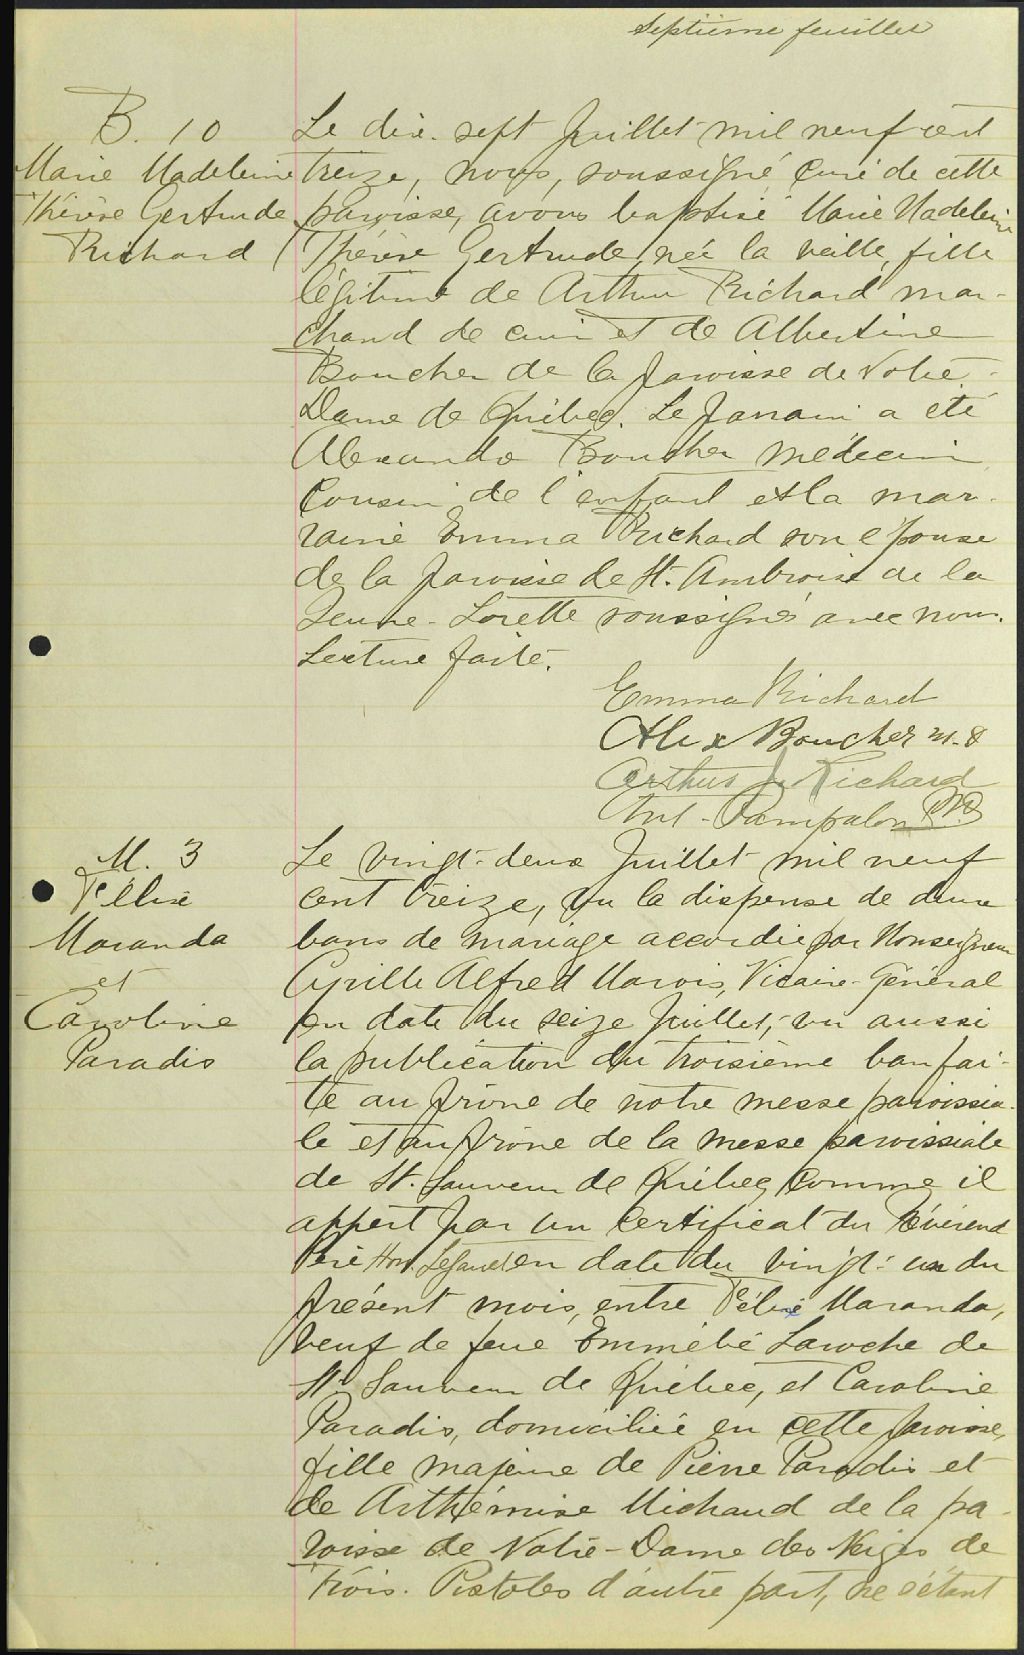 Septième feuillet
B. 10
Marie Madeleine
Thérèse Gertrude
Richard
Le dix-sept Juillet mil neuf cent
treize, nous, soussigné curé de cette
paroisse, avons baptisé Marie Madeleine
Thérèse Gertrude, née la veille, fille
légitime de Arthur Richard mar-
chand de cuir et de Albertine
Boucher de la paroisse de Notre-
Dame de Québec. Le parrain a été
Alexandre Boucher médecin
cousin de l'enfant et la mar-
raine Emma Richard son épouse
de la paroisse de St. Ambroise de la
Jeune-Lorette soussignés avec nous.
Lecture faite.
Emma Richard
Alex Boucher M.D
Arthur J. Richard
Ant. Pampalon Ptre
M. 3
Félix
Maranda
et
Caroline
Paradis
Le vingt-deux Juillet mil neuf
cent treize, vu la dispense de deux
bans de mariage accordée par Monseigneur
Cyrille Alfred Marois, Vicaire-Général
en date du seize Juillet; vu aussi
la publication du troisième ban fai-
te au prône de notre messe paroissia-
le et au prône de la messe paroissiale
de St. Sauveur de Québec comme il
appert par un certificat du Révérend
Père en date du vingt-un du
présent mois, entre Félix Maranda,
veuf de feue Emmélie Laroche de
St Sauveur de Québec, et Caroline
Paradis, domiciliée en cette paroisse,
fille majeure de Pierre Paradis et
de Arthémise Michaud de la pa-
roisse de Notre-Dame des Neiges de
Trois-Pistoles d'autre part, ne s'étant